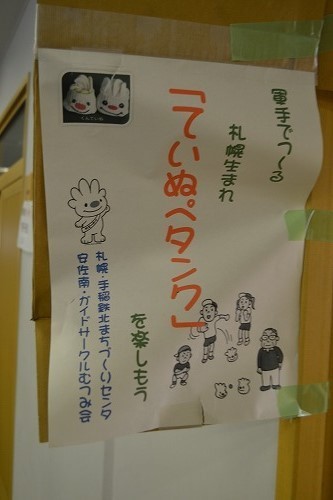 軍手でつくる
札幌生まれ
「ていぬペタンク」
を楽しもう
札幌・手稲鉄北まちづくりセンター
安佐南・ガイドサークルむつみ会